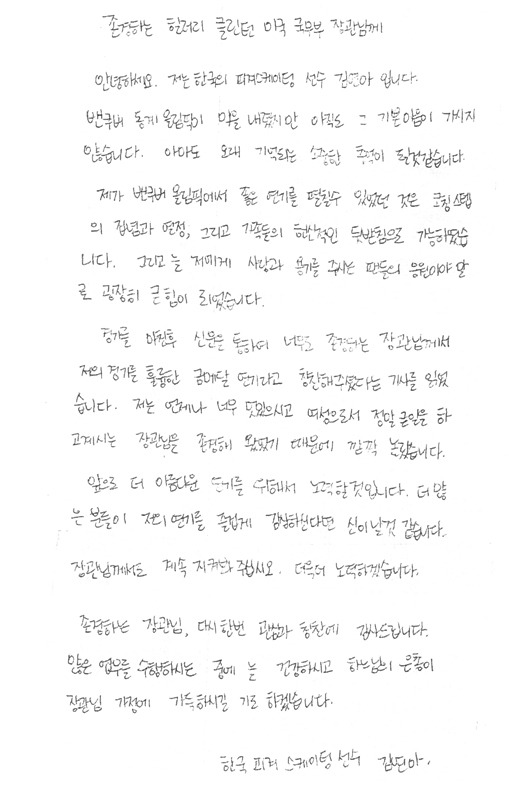 존경하는 힐러리 클린턴 미국 국무부 장관님께
안녕하세요. 저는 한국의 피겨스케이팅 선수 김연아 입니다.
밴쿠버 동계 올림픽이 막을 내렸지만 아직도 그 기분이 가시지
않습니다. 아마도 오래 기억되는 소중한 추억이 될것같습니다.
제가 밴쿠버 올림픽에서 좋은 연기를 펼칠수 있었던 것은 코칭스텝
의 집념과 열정, 그리고 가족들의 헌신적인 뒷받침으로 가능하였습
니다. 그리고 늘 저에게 사랑과 용기를 주시는 팬들의 응원이야 말
로 굉장히 큰 힘이 되었습니다.
경기를 마친후 신문을 통하여 너무도 존경하는 장관님께서
저의 경기를 훌륭한 금메달 연기라고 칭찬해주셨다는 기사를 읽었
습니다. 저는 언제나 너무 멋있으시고 여성으로서 정말 큰일을 하
고계시는 장관님을 존경해 왔었기 때문에 깜짝 놀랐습니다.
앞으로 더 아름다운 연기를 위해서 노력할것입니다. 더 많
은 분들이 저의 연기를 즐겁게 감상하신다면 신이날것 같습니다.
장관님께서도 계속 지켜봐 주십시오. 더욱더 노력하겠습니다.
존경하는 장관님, 다시 한번 관심과 칭찬에 감사드립니다.
많은 업무를 수행하시는 중에 늘 건강하시고 하느님의 은총이
장관님 가정에 가득하시길 기도 하겠습니다.
한국 피겨 스케이팅 선수 김연아.